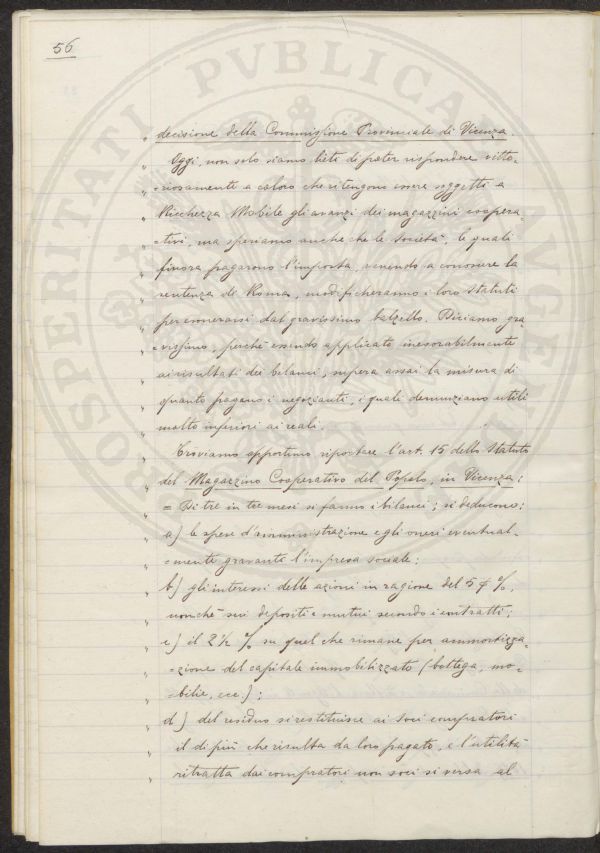 56
„ decisione della Commissione Provinciale di Vicenza
„ Oggi, non solo siamo lieti di poter rispondere vitto-
„ =riosamente a coloro che ritengono essere soggetti a
„ Ricchezza Mobile gli avanzi dei magazzini coopera-
„ =tivi, ma speriamo anche che le Società, le quali
„ finora pagarono l'imposta, venendo a conoscere la
„ sentenza di Roma, modificheranno i loro statuti
„ per esonerarsi dal gravissimo balzello. Diciamo gra-
„ =vissimo, perchè essendo applicato inesorabilmente
„ ai risultati dei bilanci, supera assai la misura di
„ quanto pagano i negozianti, i quali denunziano utili
„ molto inferiori ai reali.
„ Troviamo opportuno riportare l'art. 15 dello Statuto
„ del Magazzino Cooperativo del Popolo, in Vicenza:
„ = Di tre in tre mesi si fanno i bilanci; si deducono:
„ a) le spese d'amministrazione e gli oneri eventual-
„ =mente gravante l'impresa sociale;
„ b) gli interessi delle azioni in ragione del 5 %,
„ nonchè sui depositi e mutui secondo i contratti;
„ c) il 2½ % su quel che rimane per ammortizza-
„ =zione del capitale immobilizzato (bottega, mo-
„ =bilie, ecc.);
„ d) del residuo si restituisce ai soci compratori
„ il di più che risulta da loro pagato, e l'utilità
„ ritratta dai compratori non soci si versa al
PROSPERITATI PVBLICAE AVGENDAE